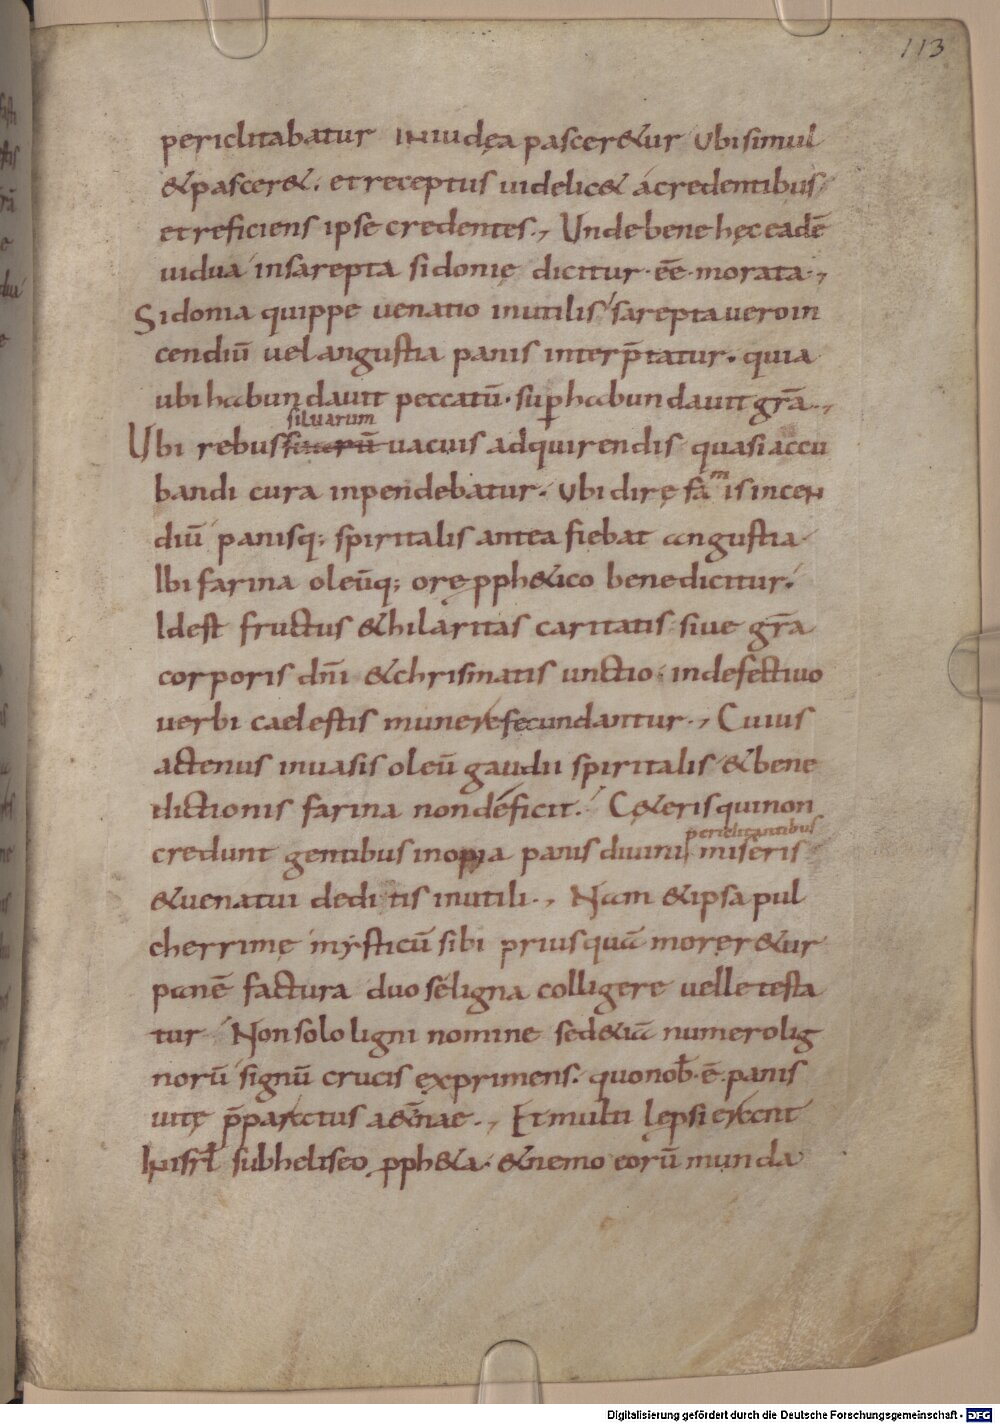 113
periclitabatur IN iudęa pascer&ur Ubi simul
& pascer&. et receptus uidelic& a credentibus
et reficiens ipse credentes., Unde bene hęc eadē
uidua in sarepta sidonię dicitur · eē · morata.,
Sidonia quippe uenatio inutilis sarepta uero in
cendiū uel angustia panis interp̄tatur. quia
ubi habundauit peccatū. suꝑhabundauit gr̄a.,
siluarum
Ubi rebus uacuis adquirendis quasi accu
bandi cura inpendebatur. Ubi dirę famis incen
diū panisq; spiritalis antea fiebat angustia
Ibi farina oleūq; orę pph&ico benedicitur.
Idest fructus & hilaritas caritatis siue gr̄a
corporis dn̄i & chrismatis unctio. indefectiuo
uerbi caelestis munere fecundantur., Cuius
actenus in uasis oleū gaudii spiritalis & bene
dictionis farina non deficit. C&eris qui non
periclitantibus
credunt gentibus inopia panis diuini miseris
& uenatui deditis inutili., Nam & ipsa pul
cherrime mysticū sibi priusquā morer&ur
panē factura duo se ligna colligere uelle testa
tur Non solo ligni nomine sed &iā numero lig
norū signū crucis exprimens. quo nob̄. ē. panis
uitę p̄paratus a&̄nae., Et multi lepsi erant
In isrl̄ sub heliseo pph&a. & nemo eorū munda
Digitalisierung gefördert durch die Deutsche Forschungsgemeinschaft - DFG